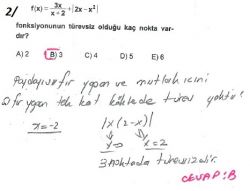 2/ f(x) = 3x/(x+2) + |2x - x²|
fonksiyonunun türevsiz olduğu kaç nokta var-
dır?
A) 2 B) 3 C) 4 D) 5 E) 6
Paydayı sıfır yapan ve mutlak içini
sıfır yapan tek kat köklerde türev yoktur.
x=-2 |x(2-x)|
x=0 x=2
3 noktada türevsizdir.
CEVAP: B